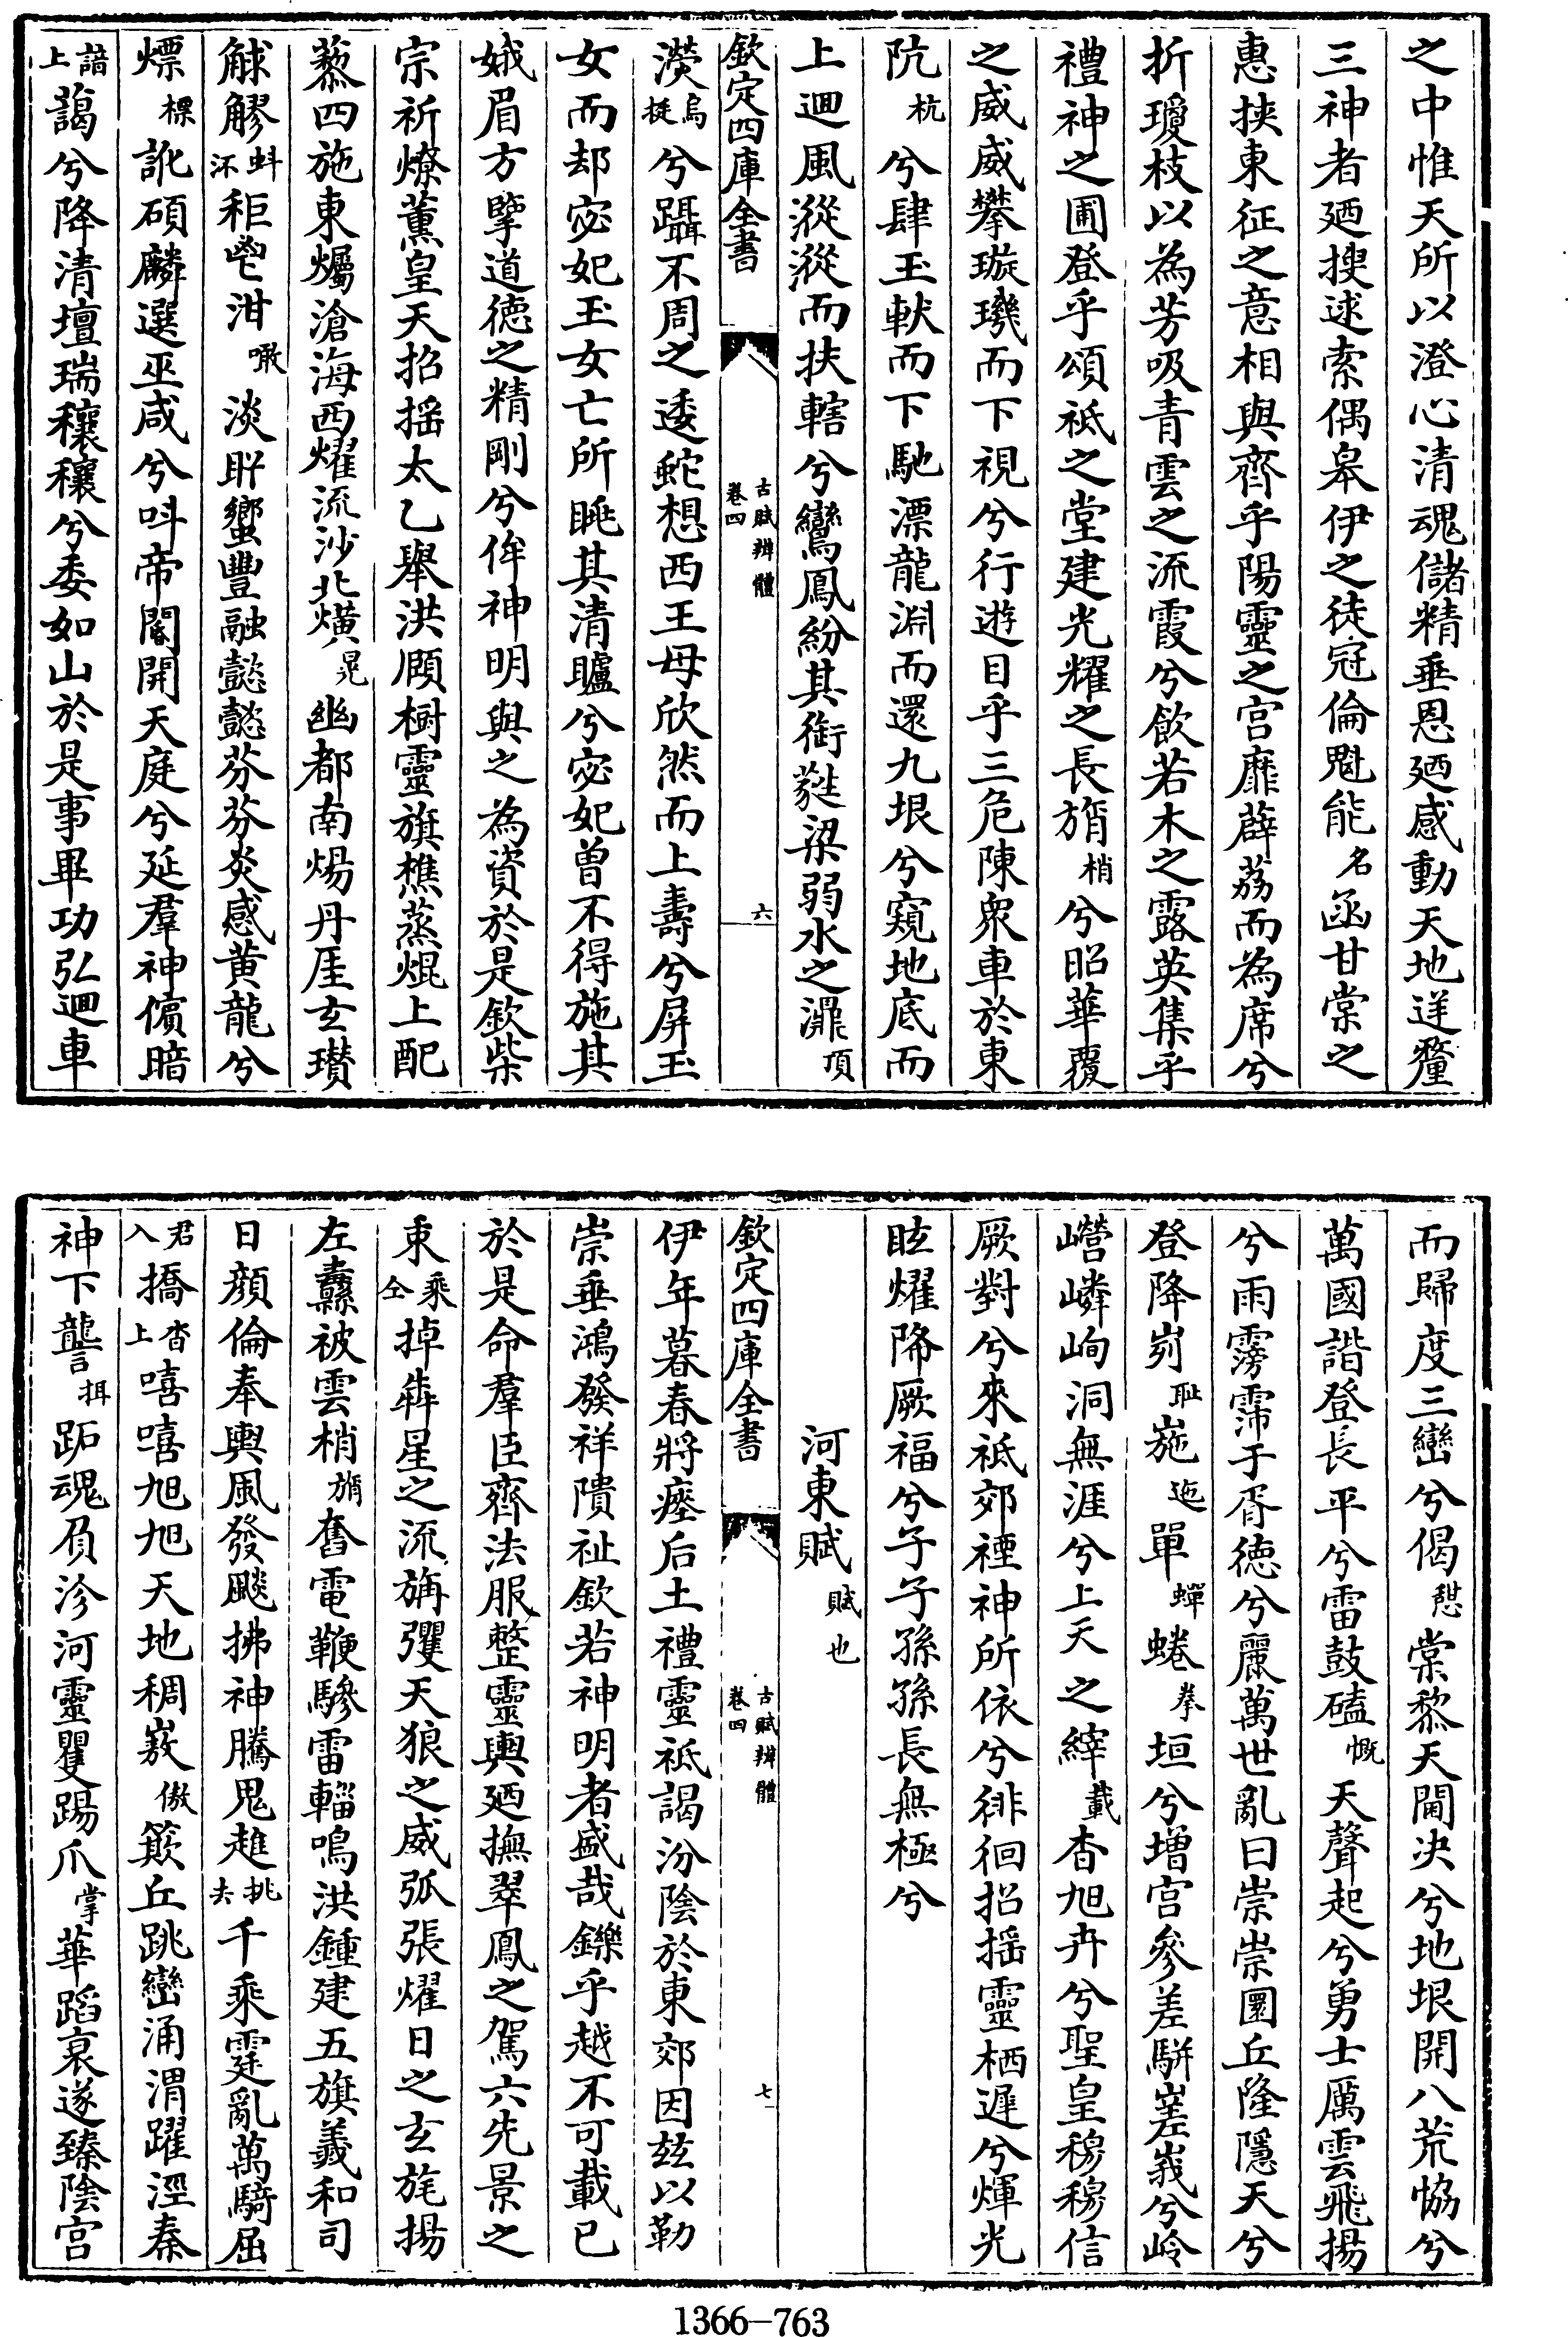 之中惟天所以澄心清魂儲精垂恩廼感動天地逆釐
三神者廼搜逑索偶皋伊之徒冠倫魁能名函甘棠之
惠挾東征之意相與齊乎陽靈之宫靡薜荔而為席兮
折瓊枝以為芳吸青雲之流霞兮飲若木之露英集乎
禮神之囿登乎頌祇之堂建光耀之長旓梢兮昭華覆
之威威攀璇璣而下視兮行遊目乎三危陳衆車於東
阬杭兮肆玉軑而下馳漂龍淵而還九垠兮窺地底而
上迴風漎漎而扶轄兮鸞鳳紛其銜蕤梁弱水之濎頂
欽定四庫全書 古賦辨體 卷四 六
濙烏挺兮躡不周之逶蛇想西王母欣然而上壽兮屏玉
女而却宓妃玉女亡所眺其清矑兮宓妃曾不得施其
娥眉方擥道徳之精剛兮侔神明與之為資於是欽柴
宗祈燎薰皇天招揺太乙舉洪頥樹靈旗樵蒸焜上配
藜四施東爥滄海西燿流沙北爌晃幽都南煬丹厓玄瓚
觩䚧蚪㳅秬鬯泔噉淡肸蠁豐融懿懿芬芬炎感黄龍兮
熛標訛碩麟選巫咸兮呌帝閽開天庭兮延羣神儐暗
諳上藹兮降清壇瑞穰穰兮委如山於是事畢功弘迴車
而歸度三巒兮偈憇棠黎天閫决兮地垠開八荒協兮
萬國諧登長平兮雷鼓磕慨天聲起兮勇士厲雲飛揚
兮雨霶霈于胥徳兮麗萬世亂曰崇崇圜丘隆隱天兮
登降峛耻崺迤單蟬蜷拳垣兮増宫參差駢嵳峩兮岭
巆嶙峋洞無涯兮上天之縡載杳旭卉兮聖皇穆穆信
厥對兮來祇郊禋神所依兮徘徊招揺靈栖遲兮煇光
眩燿降厥福兮子子孫孫長無極兮
河東賦賦也
欽定四庫全書 古賦辨體 卷四 七
伊年暮春將瘞后土禮靈祇謁汾陰於東郊因兹以勒
崇垂鴻發祥隤祉欽若神明者盛哉鑠乎越不可載已
於是命羣臣齊法服整靈輿廼撫翠鳳之駕六先景之
乘乘仝掉犇星之流旃彏天狼之威弧張燿日之玄旄揚
左纛被雲梢旓奮電鞭驂雷輜鳴洪鍾建五旗羲和司
日顔倫奉輿風發飈拂神騰鬼趡挑去千乘霆亂萬騎屈
君入撟杳上嘻嘻旭旭天地稠嶅傲簸丘跳巒涌渭躍涇秦
神下讋揖跖魂負沴河靈矍踢爪掌華蹈衰遂臻陰宫
1366—763